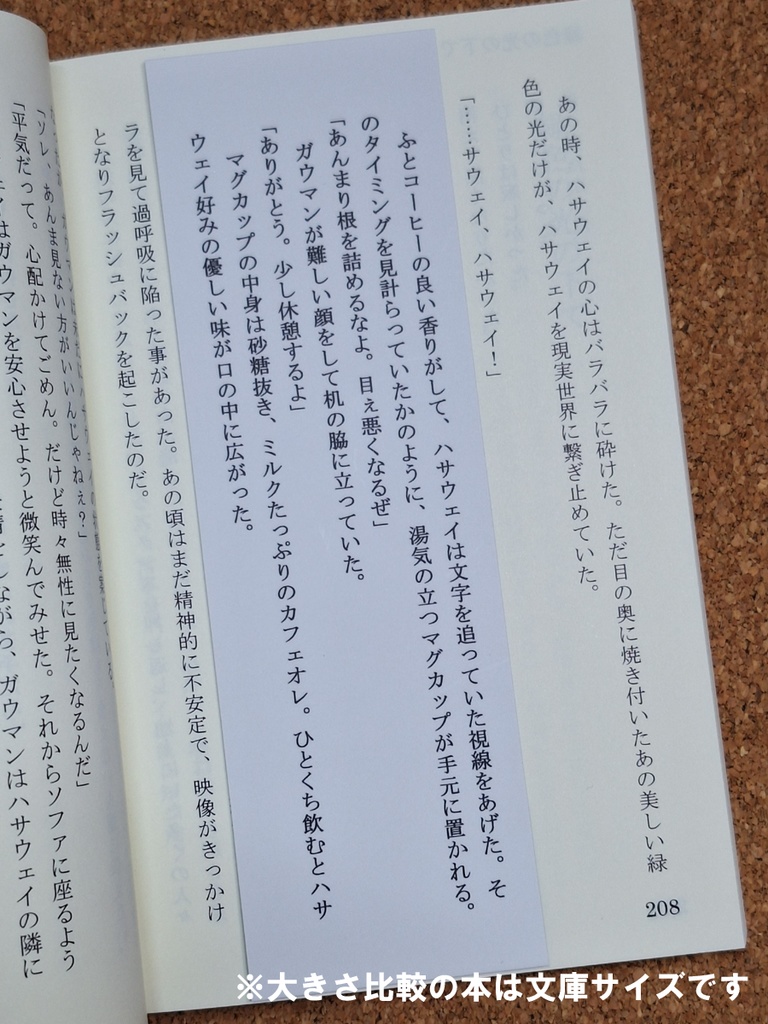 あの時、ハサウェイの心はバラバラに砕けた。ただ目の奥に焼き付いたあの美しい緑
色の光だけが、ハサウェイを現実世界に繋ぎ止めていた。
「……サウェイ、ハサウェイ！」
ふとコーヒーの良い香りがして、ハサウェイは文字を追っていた視線をあげた。そ
のタイミングを見計らっていたかのように、湯気の立つマグカップが手元に置かれる。
「あんまり根を詰めるなよ。目ぇ悪くなるぜ」
ガウマンが難しい顔をして机の脇に立っていた。
「ありがとう。少し休憩するよ」
マグカップの中身は砂糖抜き、ミルクたっぷりのカフェオレ。ひとくち飲むとハサ
ウェイ好みの優しい味が口の中に広がった。
ラを見て過呼吸に陥った事があった。あの頃はまだ精神的に不安定で、映像がきっかけ
となりフラッシュバックを起こしたのだ。
「ソレ、あんま見ない方がいいんじゃねぇ？」
「平気だって。心配かけてごめん。だけど時々無性に見たくなるんだ」
はガウマンを安心させようと微笑んでみせた。それからソファに座るよう
ながら、ガウマンはハサウェイの隣に
208
※大きさ比較の本は文庫サイズです